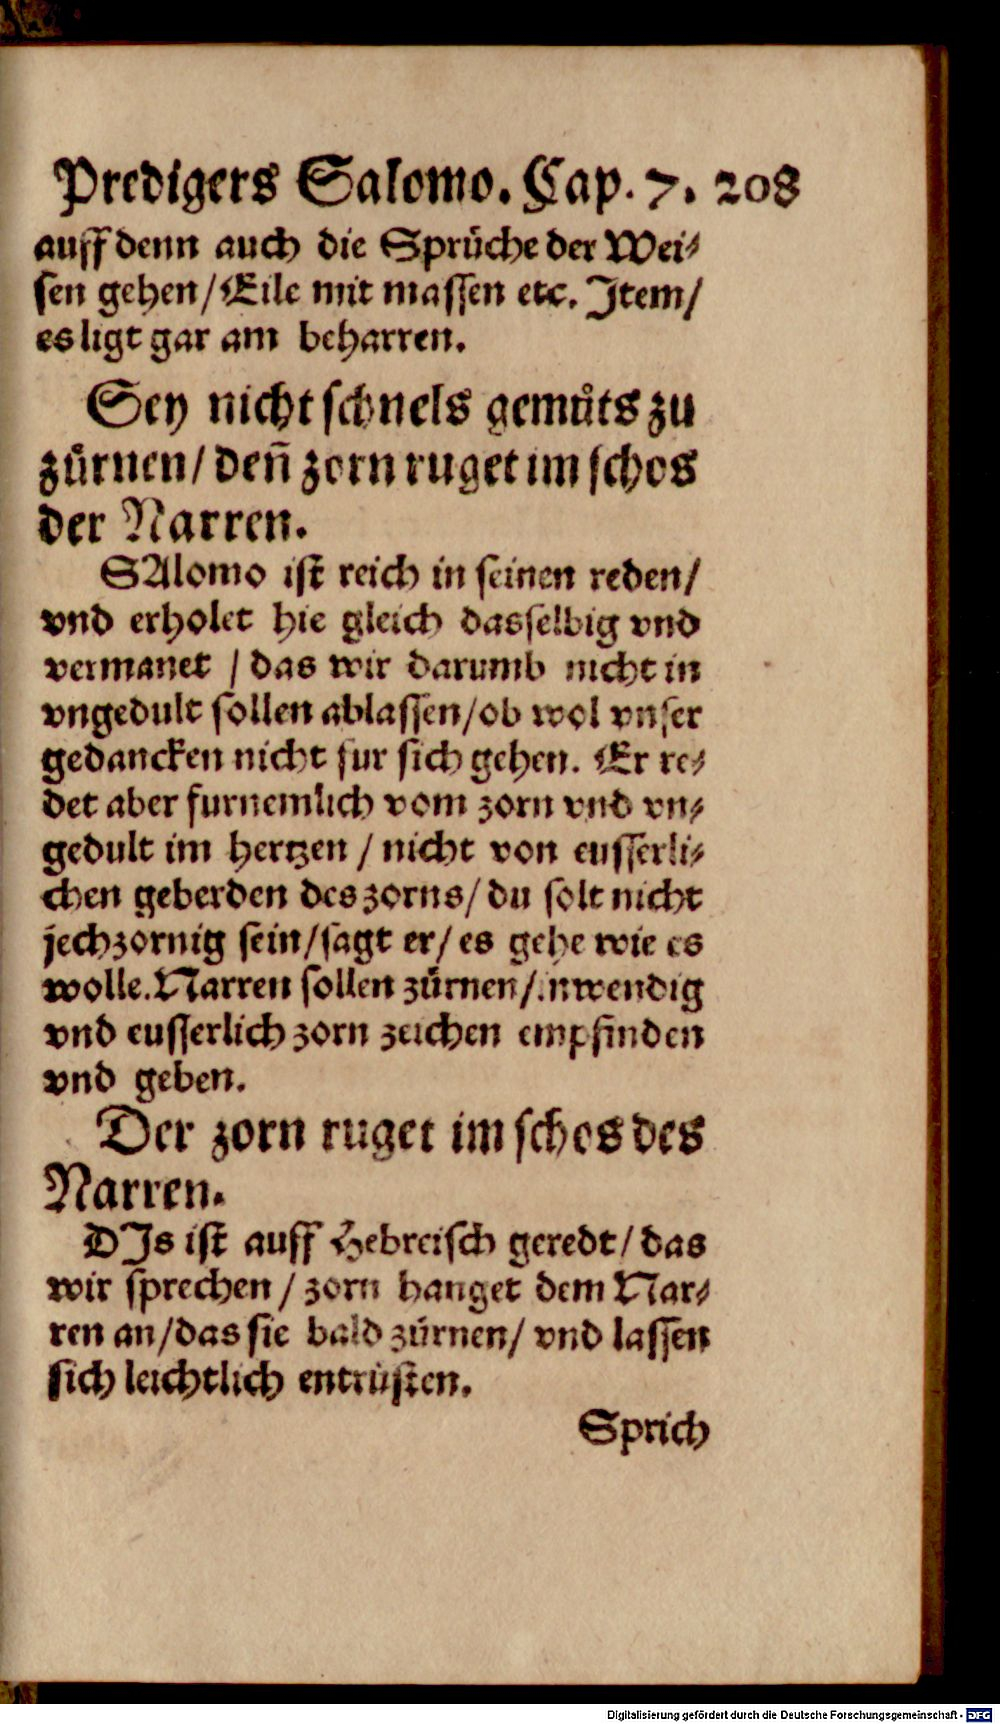 Predigers Salomo. Cap. 7. 208
auff denn auch die Sprüche der Wei⸗
sen gehen/ Eile mit massen etc. Item/
es ligt gar am beharren.
Sey nicht schnels gemuͤts zu
zuͤrnen/ deñ zorn ruget im schos
der Narren.
SAlomo ist reich in seinen reden/
vnd erholet hie gleich dasselbig vnd
vermanet / das wir darumb nicht in
vngedult sollen ablassen/ ob wol vnser
gedancken nicht fur sich gehen. Er re⸗
det aber furnemlich vom zorn vnd vn⸗
gedult im hertzen / nicht von eusserli⸗
chen geberden des zorns/ du solt nicht
jechzornig sein/ sagt er/ es gehe wie es
wolle. Narren sollen zürnen/ inwendig
vnd eusserlich zorn zeichen empfinden
vnd geben.
Der zorn ruget im schos des
Narren.
DIs ist auff Hebreisch geredt/ das
wir sprechen / zorn hanget dem Nar⸗
ren an/ das sie bald zürnen/ vnd lassen
sich leichtlich entrüsten.
Sprich
Digitalisierung gefördert durch die Deutsche Forschungsgemeinschaft - DFG